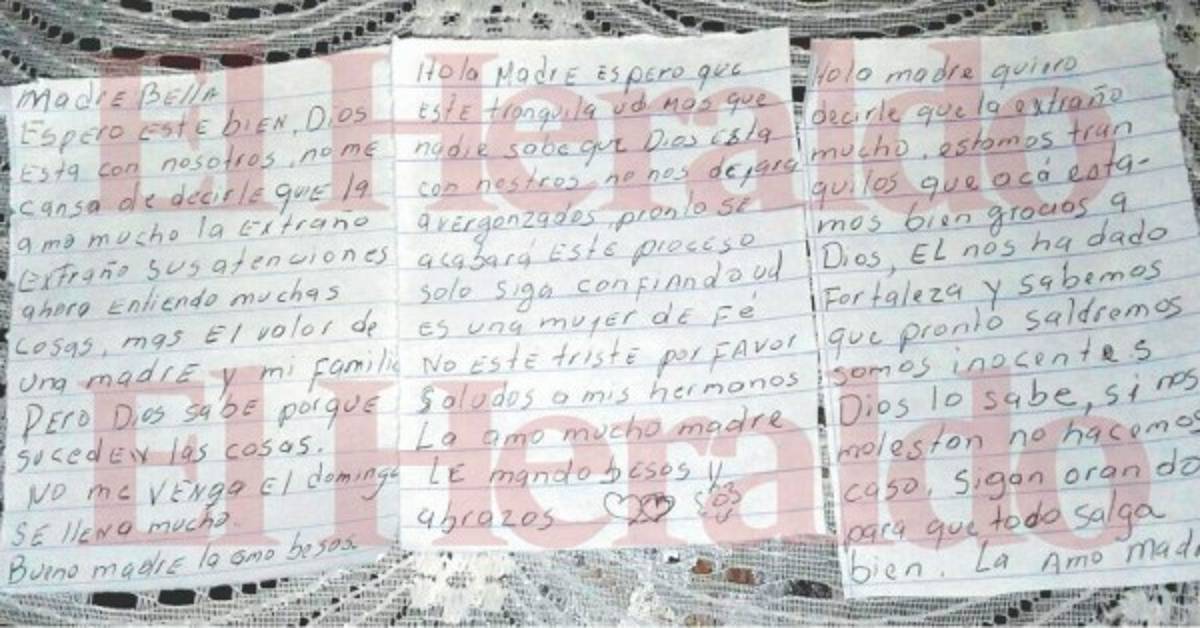 MADRE BELLA
ESPERO ESTE bIEN. DIOS
ESTA con nosotros, no me
cansa de decirle QUE la
amo mucho la Extraño
Extraño sus atenciones
ahora Entiendo muchas
cosas, mas El valor de
una madre y mi Familia
PERO DIOS SABE porque
suceden las cosas.
NO me VENga El domingo
SE llena mucho.
Bueno madre la amo besos.
Hola MADRE ESPERO QUE
ESTE tranquila ud mas que
nadie sabe que Dios Esta
con nestros no nos dejara
avergonzados, pronto SE
acabará ESTE proceso
solo siga confiando ud
ES una mujer de Fé
NO ESTE triste por FAVOR
Saludos a mis hermanos
La amo mucho madre
LE mando besos y
abrazos
Hola madre quiero
decirle que la extraño
mucho. estamos tran
quilos que acá esta-
mos bien gracias a
Dios, EL nos ha dado
Fortaleza y sabemos
que pronto saldremos
somos inocentes
Dios lo sabe, si nos
molestan no hacemos
caso. Sigan orando
para que todo salga
bien. La Amo madr
El Heraldo
El Heraldo